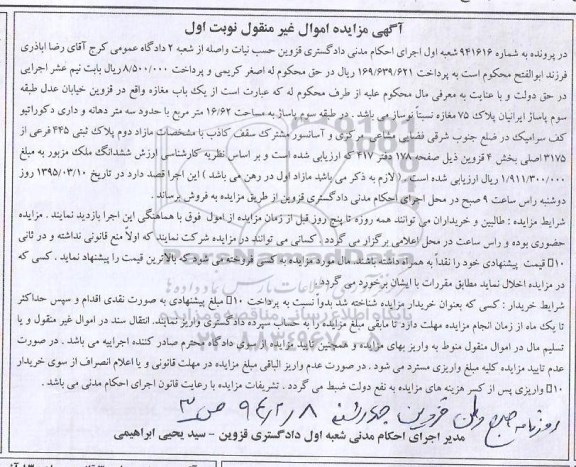 آگهی مزایده اموال غیر منقول نوبت اول
در پرونده به شماره ۹۴۱۶۱۶ شعبه اول اجرای احکام مدنی دادگستری قزوین حسب نیات واصله از شعبه ۲ دادگاه عمومی کرج آقای رضا اباذری
فرزند ابوالفتح محکوم است به پرداخت ۱۶۹/۶۳۹/۶۲۱ ریال در حق محکوم له اصغر کریمی و پرداخت ۸/۵۰۰/۰۰۰ ریال بابت نیم عشر اجرایی
در حق دولت و با عنایت به معرفی مال محکوم علیه از طرف محکوم له که عبارت است از یک باب مغازه واقع در قزوین خیابان عدل طبقه
سوم پاساژ ایرانیان پلاک ۷۵ مغازه نسبتاً نوساز می باشد . در طبقه سوم پاساژ به مساحت ۱۶/۶۲ متر مربع با حدود سه متر دهانه و داری دکوراتیو
کف سرامیک در ضلع جنوب شرقی فضای مشاعی مرکزی و آسانسور مشترک سقف کاذب با مشخصات مازاد دوم پلاک ثبتی ۴۴۵ فرعی از
۳۱۷۵ اصلی بخش ۴ قزوین ذیل صفحه ۱۷۸ دفتر ۴۱۷ که ارزیابی شده است و بر اساس نظریه کارشناسی ارزش ششدانگ ملک مزبور به مبلغ
۱/۹۱۱/۳۰۰/۰۰۰ ریال ارزیابی شده است . ( لازم به ذکر می باشد مازاد اول در رهن می باشد ) این اجرا قصد دارد در تاریخ ۱۳۹۵/۰۳/۱۰ روز
دوشنبه راس ساعت ۹ صبح در محل اجرای احکام مدنی دادگستری قزوین از طریق مزایده به فروش برساند .
شرایط مزایده : طالبین و خریداران می توانند همه روزه تا پنج روز قبل از زمان مزایده از اموال فوق با هماهنگی این اجرا بازدید نمایند . مزایده
حضوری بوده و راس ساعت در محل اعلامی برگزار می گردد . کسانی می توانند در مزایده شرکت نمایند که اولاً منع قانونی نداشته و در ثانی
۱۰٪ قیمت پیشنهادی خود را نقداً به همراه داشته باشند. مال مورد مزایده به کسی فروخته می شود که بالاترین قیمت را پیشنهاد نماید . کسی که
در مزایده اخلال نماید مطابق مقررات با ایشان برخورد می گردد .
شرایط خریدار : کسی که بعنوان خریدار مزایده شناخته شد بدواً نسبت به پرداخت ۱۰٪ مبلغ پیشنهادی به صورت نقدی اقدام و سپس حداکثر
تا یک ماه از زمان انجام مزایده مهلت دارد تا مابقی مبلغ مزایده را به حساب سپرده دادگستری واریز نمایند. انتقال سند در اموال غیر منقول و یا
تسلیم مال در اموال منقول منوط به واریز بهای مزایده و همچنین تایید مزایده از سوی دادگاه محترم صادر کننده اجراییه می باشد . در صورت
عدم تایید مزایده کلیه مبلغ واریزی مسترد می شود . در صورت عدم واریز الباقی مبلغ مزایده در مهلت قانونی و یا اعلام انصراف از سوی خریدار
۱۰٪ واریزی پس از کسر هزینه های مزایده به نفع دولت ضبط می گردد . تشریفات مزایده با رعایت قانون اجرای احکام مدنی می باشد .
مدیر اجرای احکام مدنی شعبه اول دادگستری قزوین - سید یحیی ابراهیمی